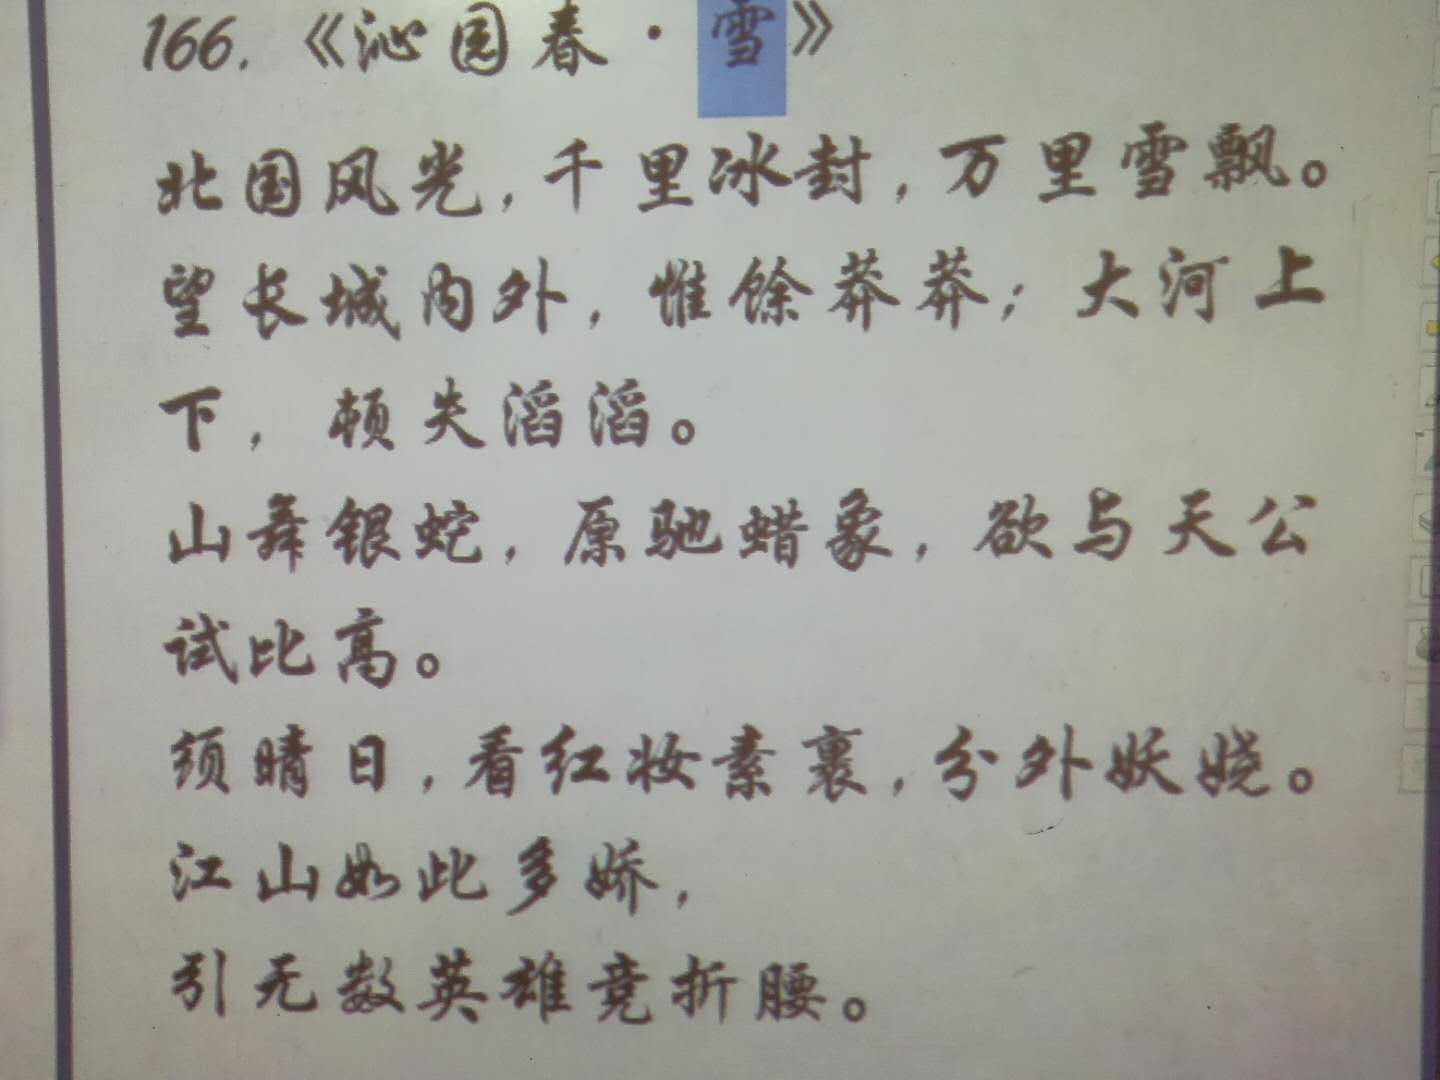 166.《沁园春·雪》
北国风光，千里冰封，万里雪飘。
望长城内外，惟馀莽莽；大河上
下，顿失滔滔。
山舞银蛇，原驰蜡象，欲与天公
试比高。
须晴日，看红妆素裹，分外妖娆。
江山如此多娇，
引无数英雄竞折腰。